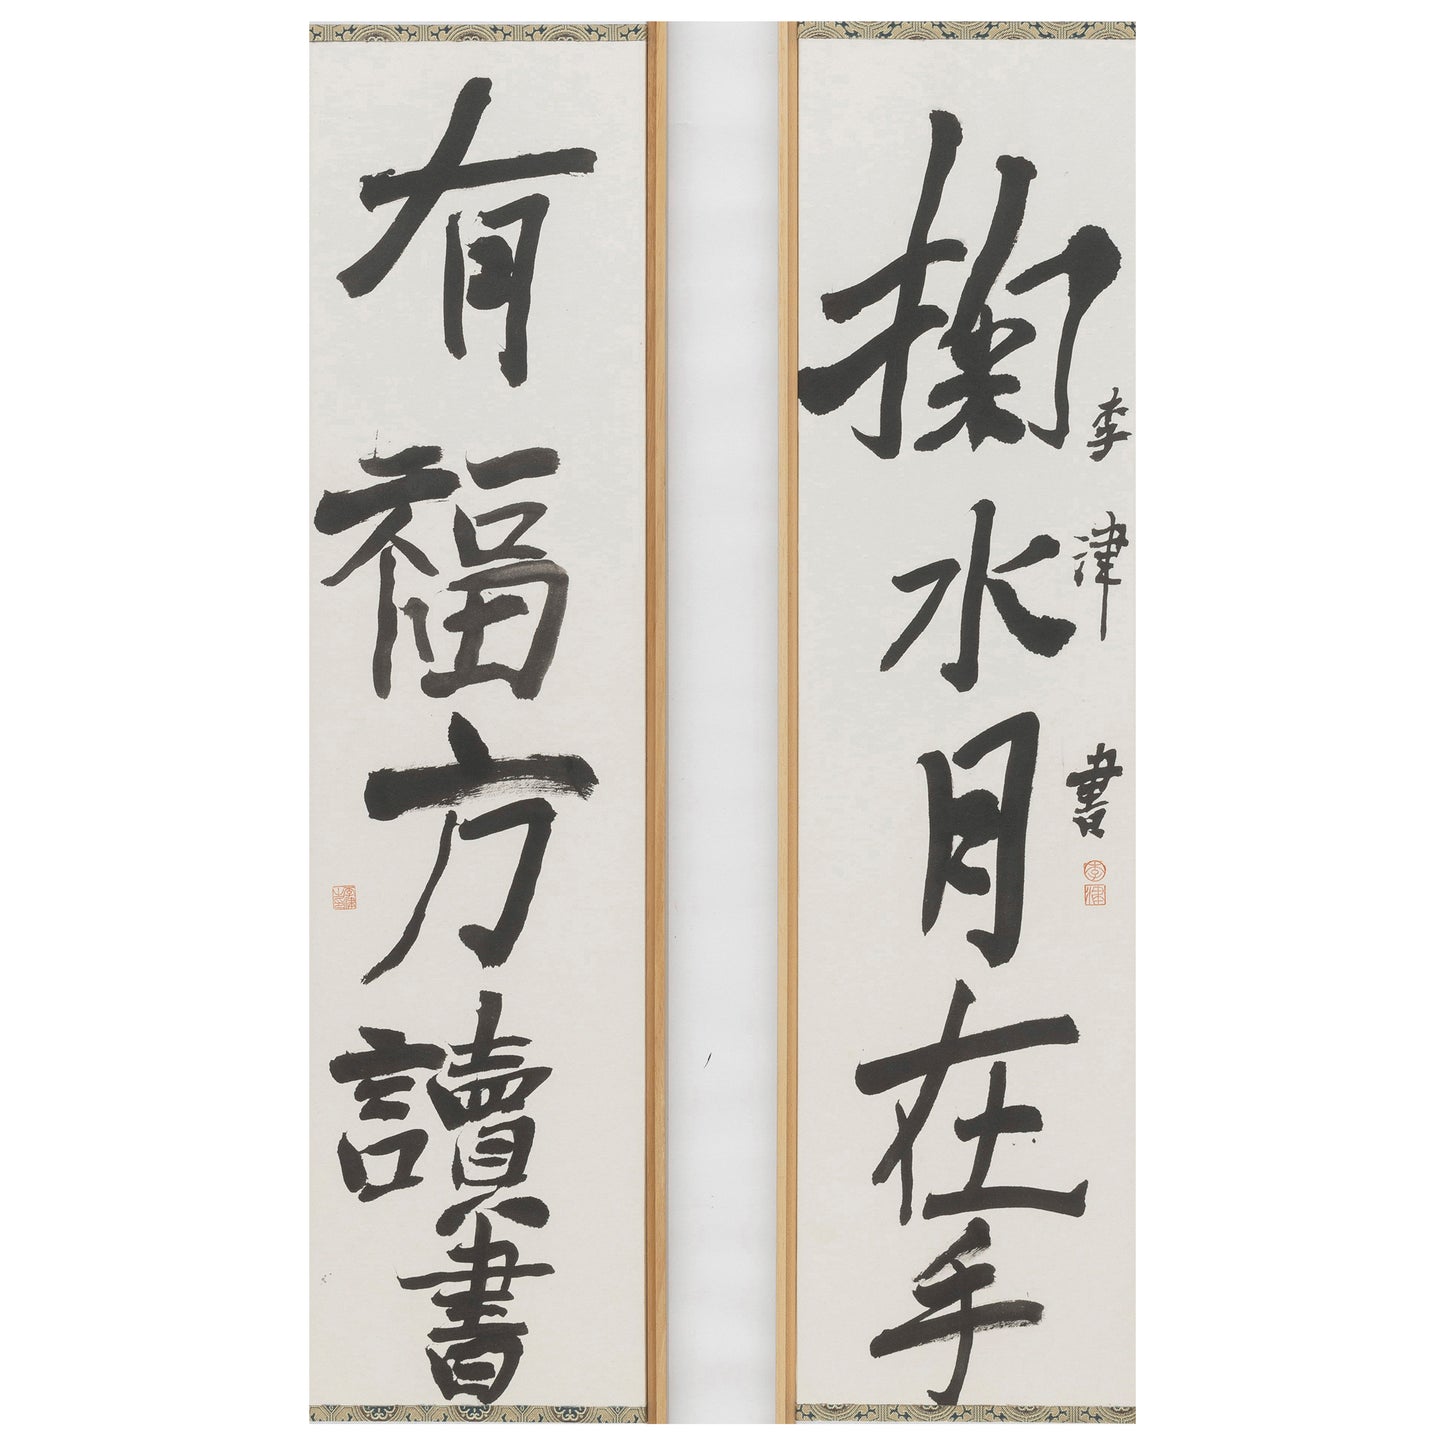 掬水月在手
李津書
有福方讀書